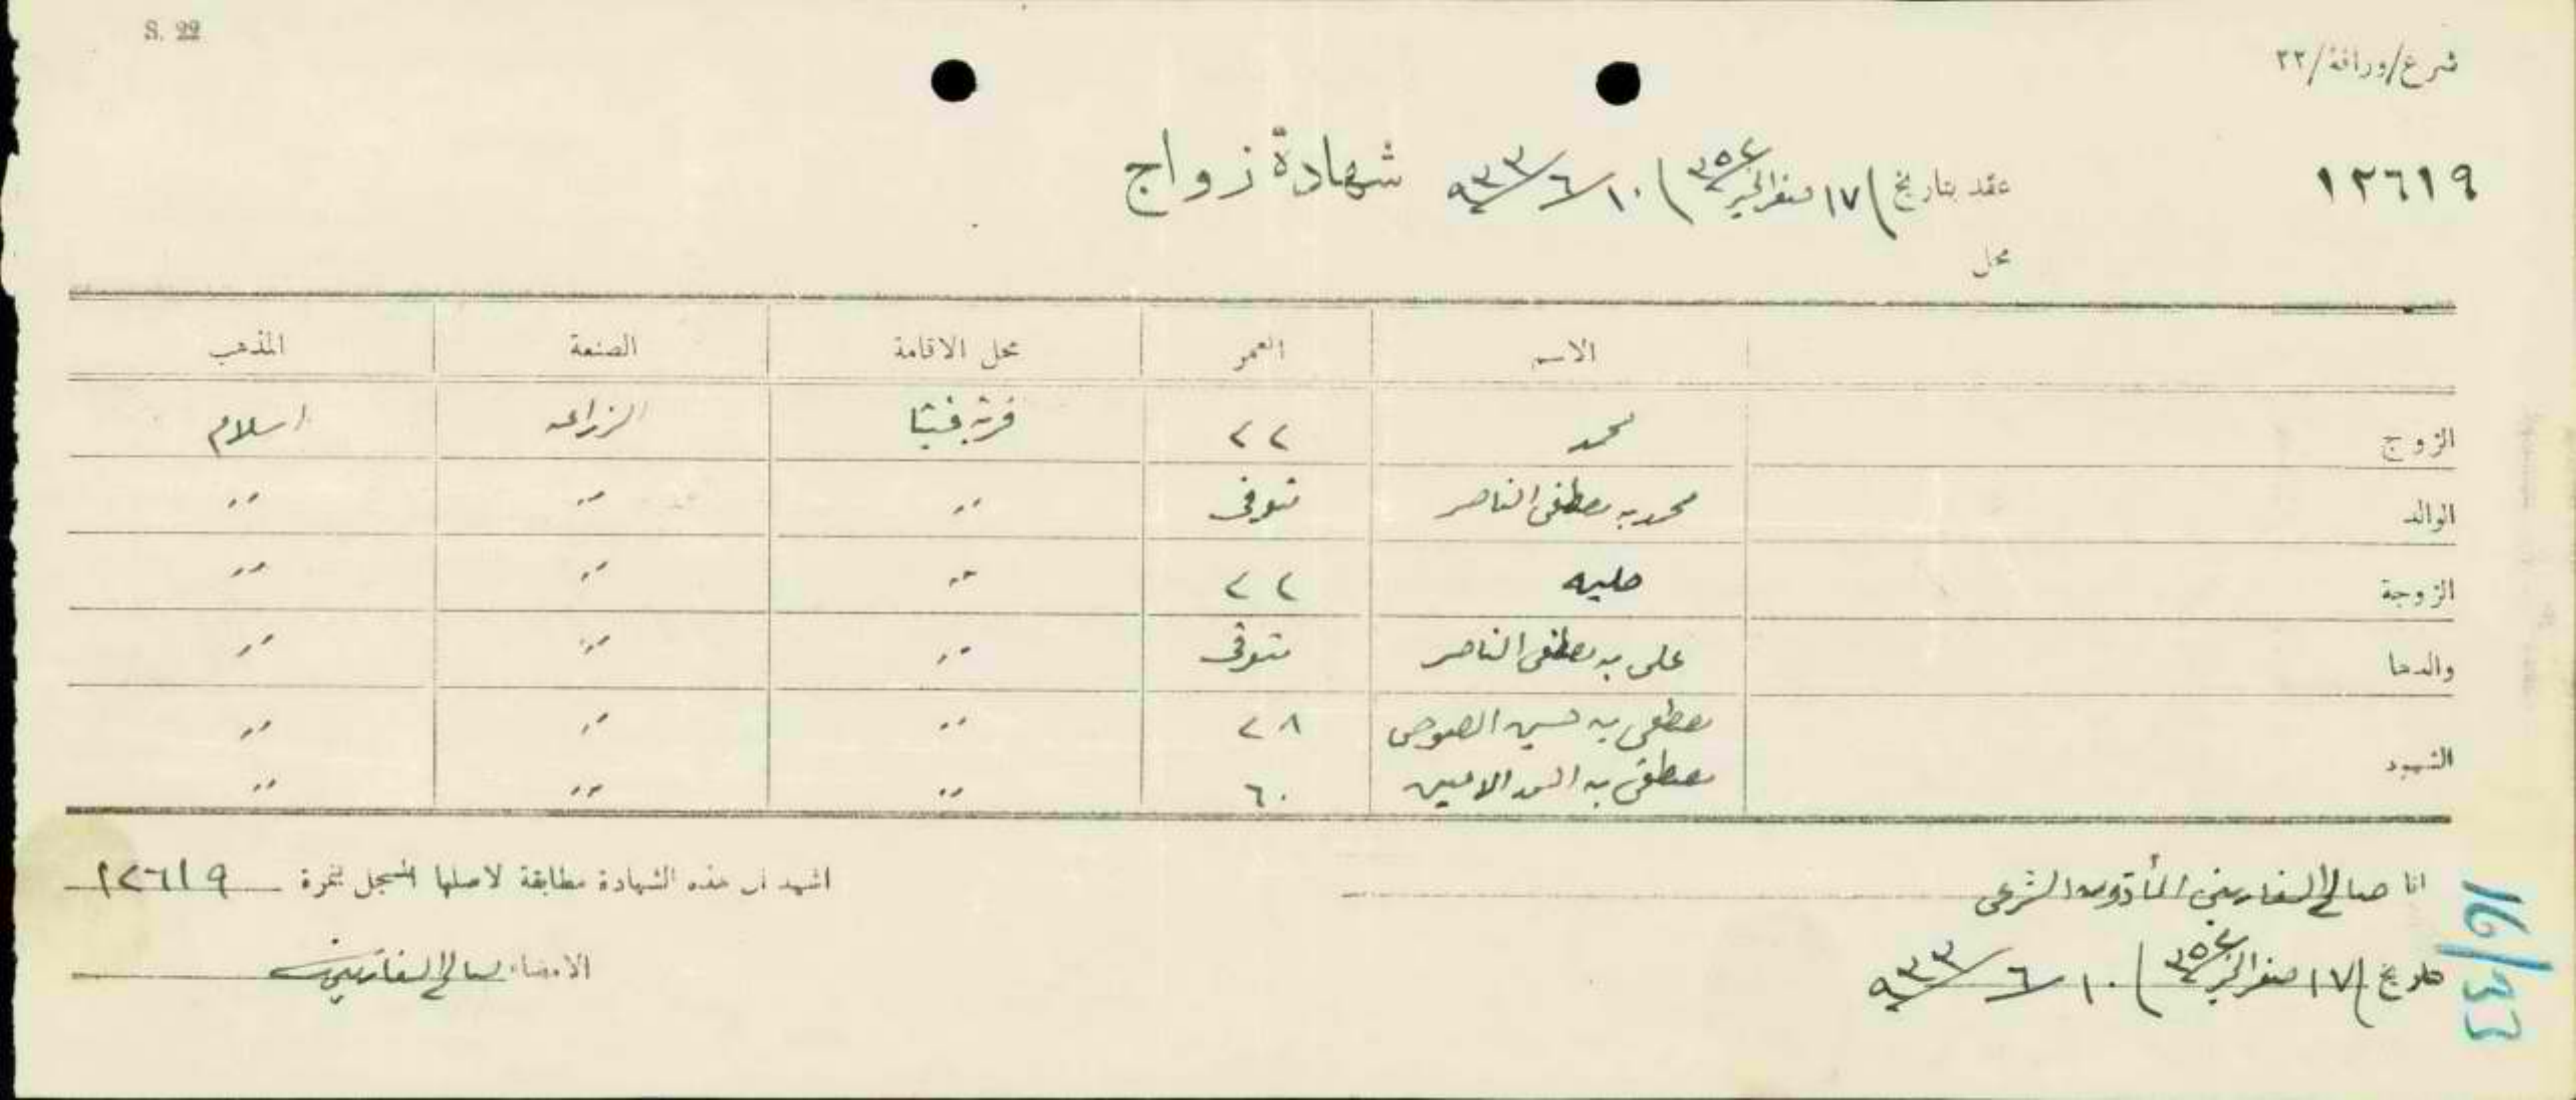 S. 22
شرع/وراقة/٢٢
١٢٦١٩
عقد بتاريخ ١٧ صفر الخير ٣٥٢ / ١٠/٦/٩٣٣ شهادة زواج
محل
الاسم العمر محل الاقامة الصنعة المذهب
الزوج محمد ٢٢ الزراعه اسلام
الوالد محمد بن مصطفى الناصر متوفى " " "
الزوجة حليمه ٢٢ " " "
والدها على بن مصطفى الناصر متوفى " " "
الشهود مصطفى بن حسين ٢٨ " " "
مصطفى بن الامين ٦٠ " " "
انا صالح السفاريني المأذون الشرعى
اشهد ان هذه الشهادة مطابقة لاصلها المسجل بنمرة ١٢٦١٩
تاريخ ١٧ صفر الخير ٣٥٢ / ١٠/٦/٩٣٣
الامضاء صالح السفاريني
16/33